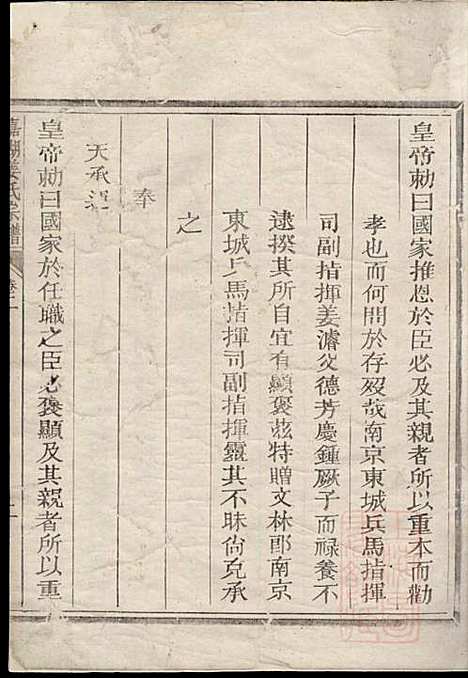 皇帝勅曰國家推恩於臣必及其親者所以重本而勸
孝也而何間於存歿哉南京東城兵馬指揮
司副指揮姜濬父德芳慶鍾厥子而祿養不
逮揆其所自宜有顯褒茲特贈文林郎南京
東城兵馬指揮司副指揮靈其不昧尙克承
之
奉
天承運
皇帝勅曰國家於任職之臣必褒顯及其親者所以重
姜氏宗譜